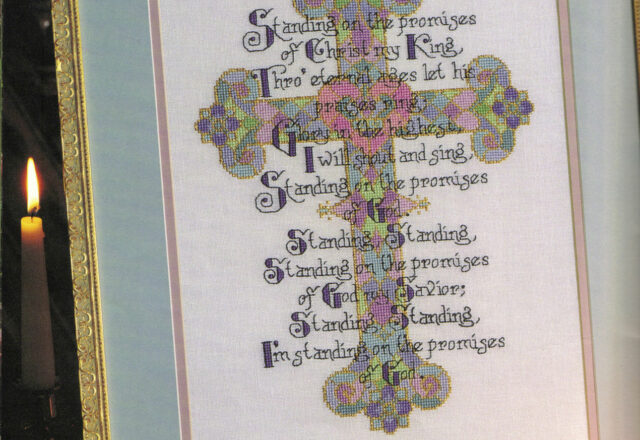 Standing on the promises
of Christ my King,
Thro' eternal ages let his
praises ring;
Glory in the highest,
I will shout and sing,
Standing on the promises
of God.
Standing, Standing,
Standing on the promises
of God my Savior;
Standing, Standing,
I'm standing on the promises
of God.